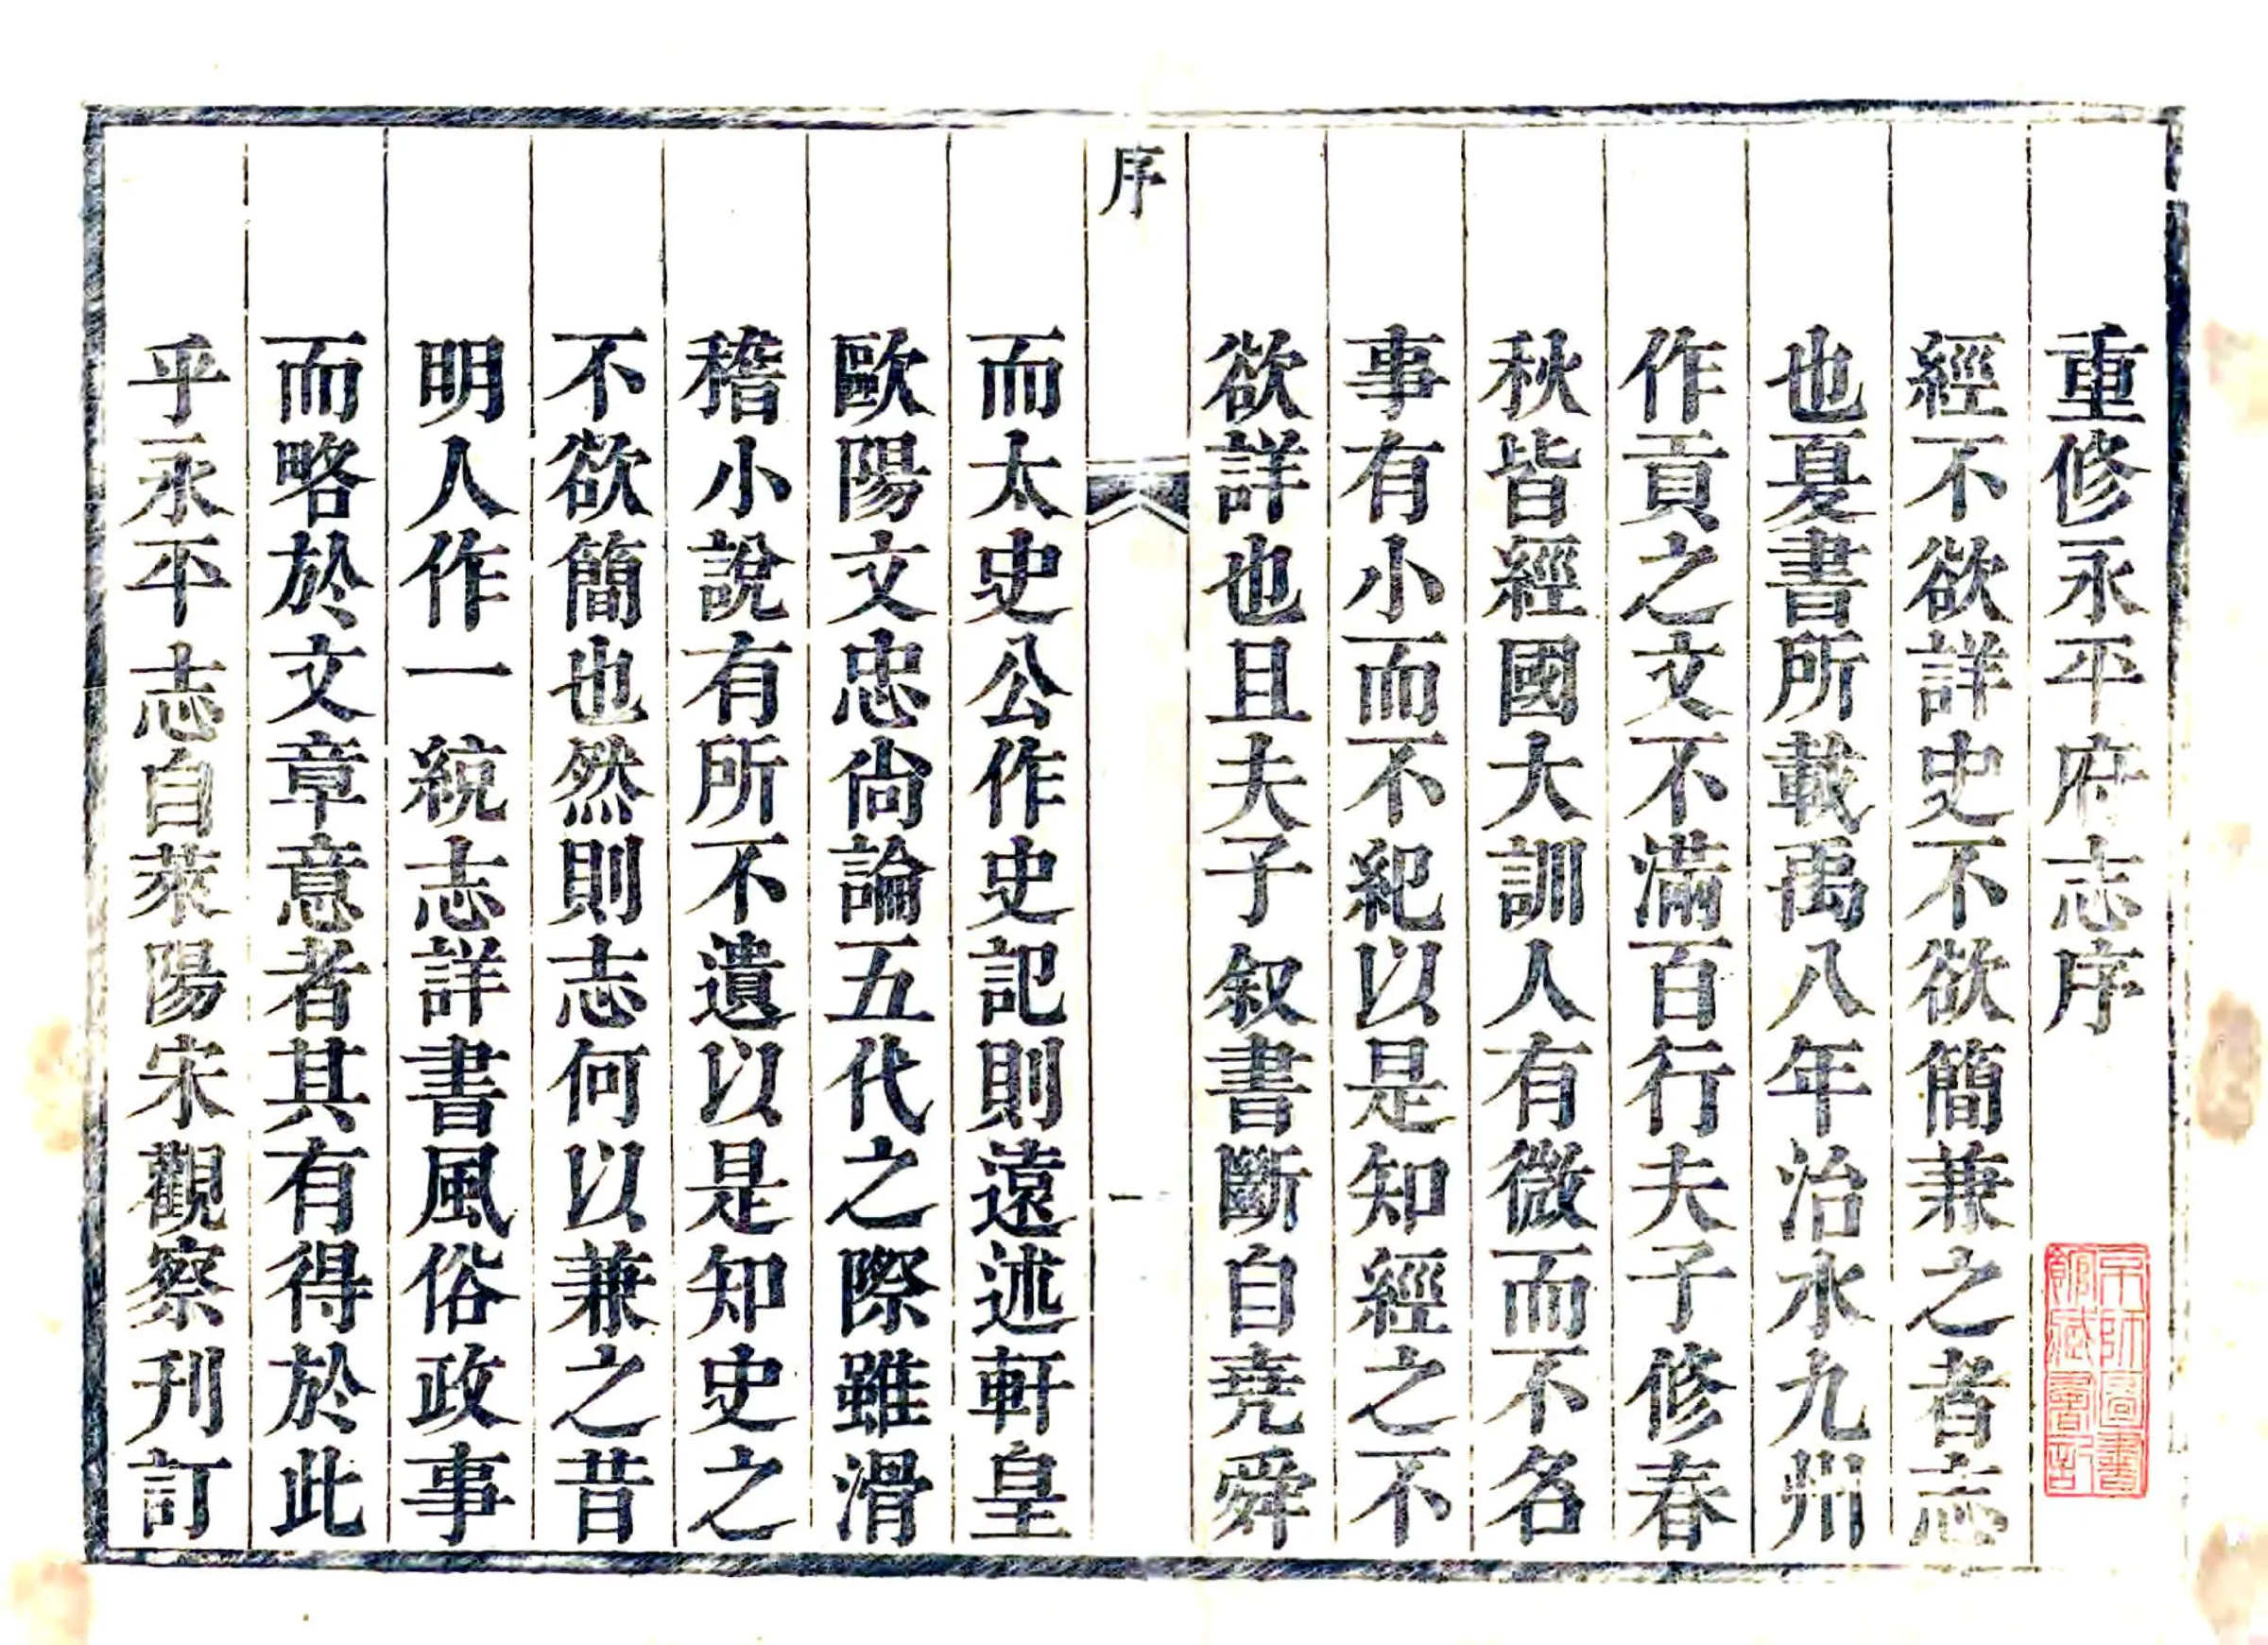 重修永平府志序
經不欲詳史不欲簡兼之者志
也夏書所載禹八年治水九州
作貢之文不滿百行夫子修春
秋皆經國大訓人有微而不名
事有小而不紀以是知經之不
欲詳也且夫子叙書斷自堯舜
序
一
而太史公作史記則遠述軒皇
歐陽文忠尙論五代之際雖滑
稽小說有所不遺以是知史之
不欲簡也然則志何以兼之昔
明人作一統志詳書風俗政事
而略於文章意者其有得於此
乎永平志自萊陽宋觀察刊訂
京師圖書
館藏書記